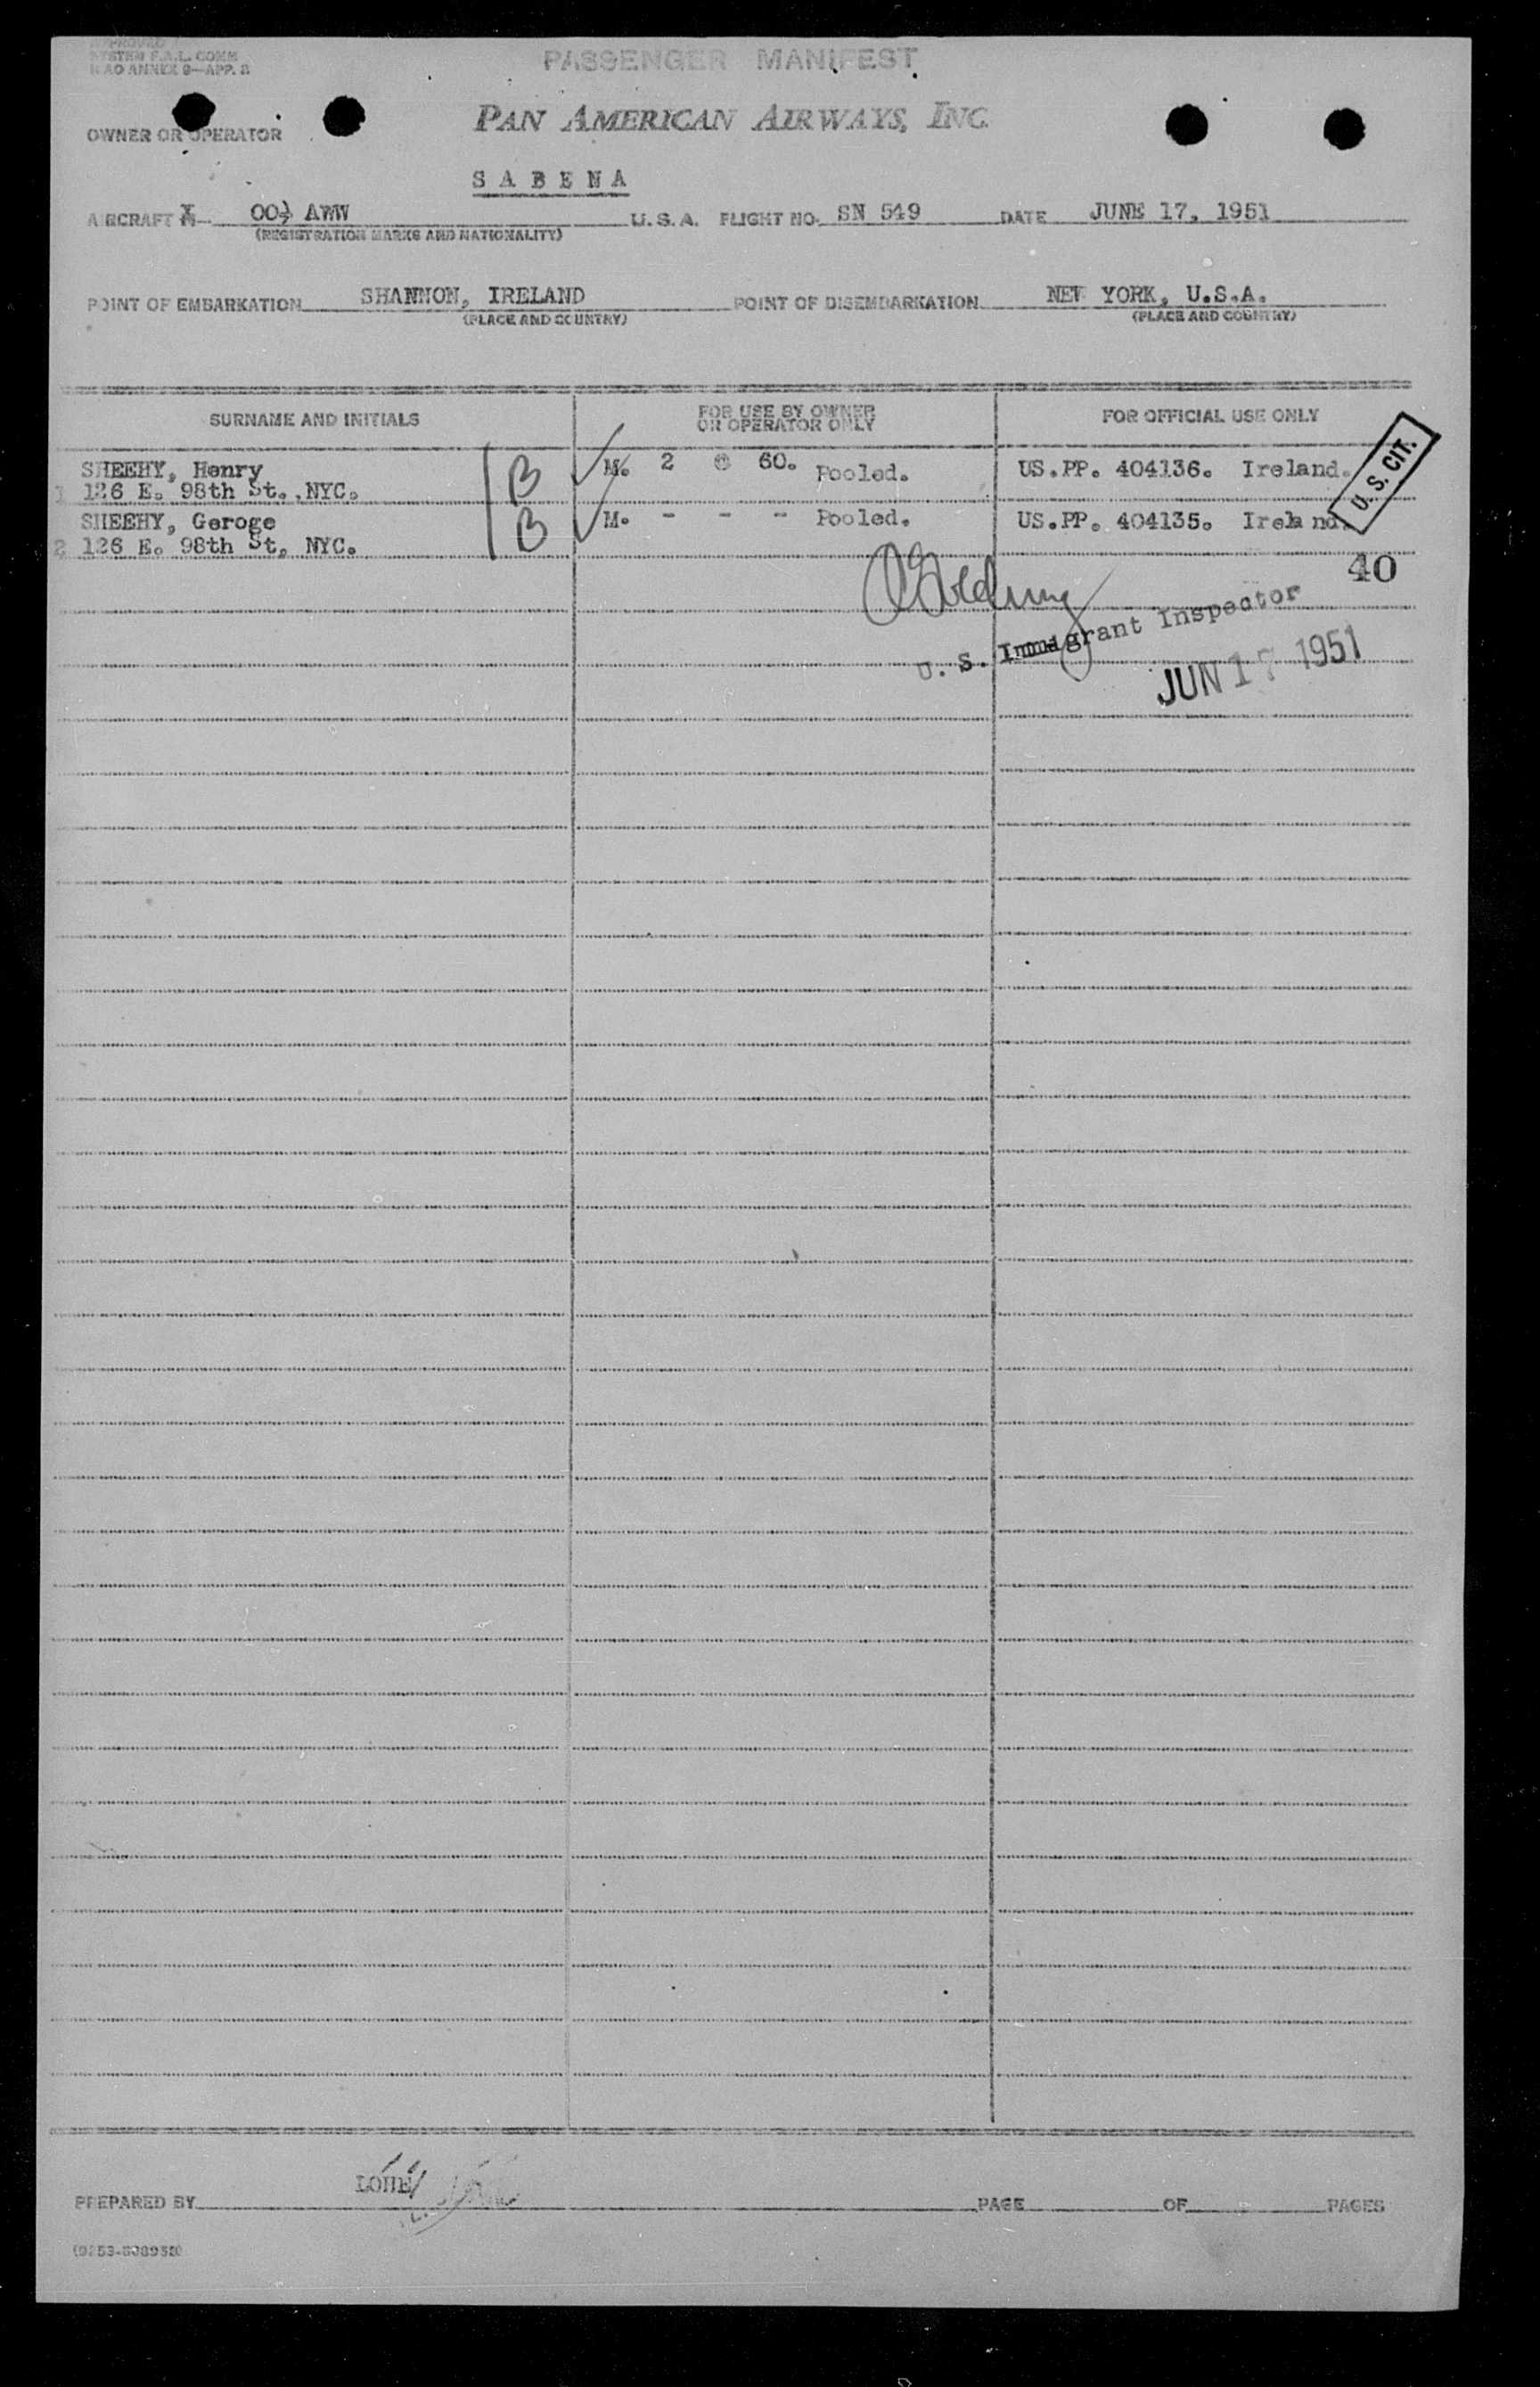 APPROVED
SYSTEM F.A.L. COMM
ICAO ANNEX 9—APP. 3
PASSENGER MANIFEST
OWNER OR OPERATOR
PAN AMERICAN AIRWAYS, INC.
SABENA
AIRCRAFT OO AWW U.S.A. FLIGHT NO. SN 549 DATE JUNE 17, 1951
(REGISTRATION MARKS AND NATIONALITY)
POINT OF EMBARKATION SHANNON, IRELAND POINT OF DISEMBARKATION NEW YORK, U.S.A.
(PLACE AND COUNTRY) (PLACE AND COUNTRY)
SURNAME AND INITIALS FOR USE BY OWNER OR OPERATOR ONLY FOR OFFICIAL USE ONLY
SHEEHY, Henry B M. 2 @ 60. Pooled. US.PP. 404136. Ireland. U.S. CIT.
1 126 E. 98th St., NYC.
SHEEHY, Geroge B M. - - - Pooled. US.PP. 404135. Ireland.
2 126 E. 98th St, NYC.
40
U. S. Immigrant Inspector
JUN 17 1951
PREPARED BY PAGE OF PAGES